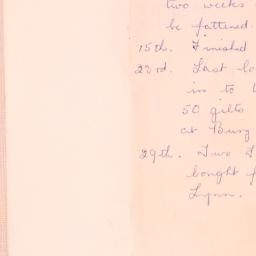 two weeks
be fattened.
15th. Finished
23rd. Last lo
in to
50 gilts
at Bury
29th. Two
bought f
Lynn.